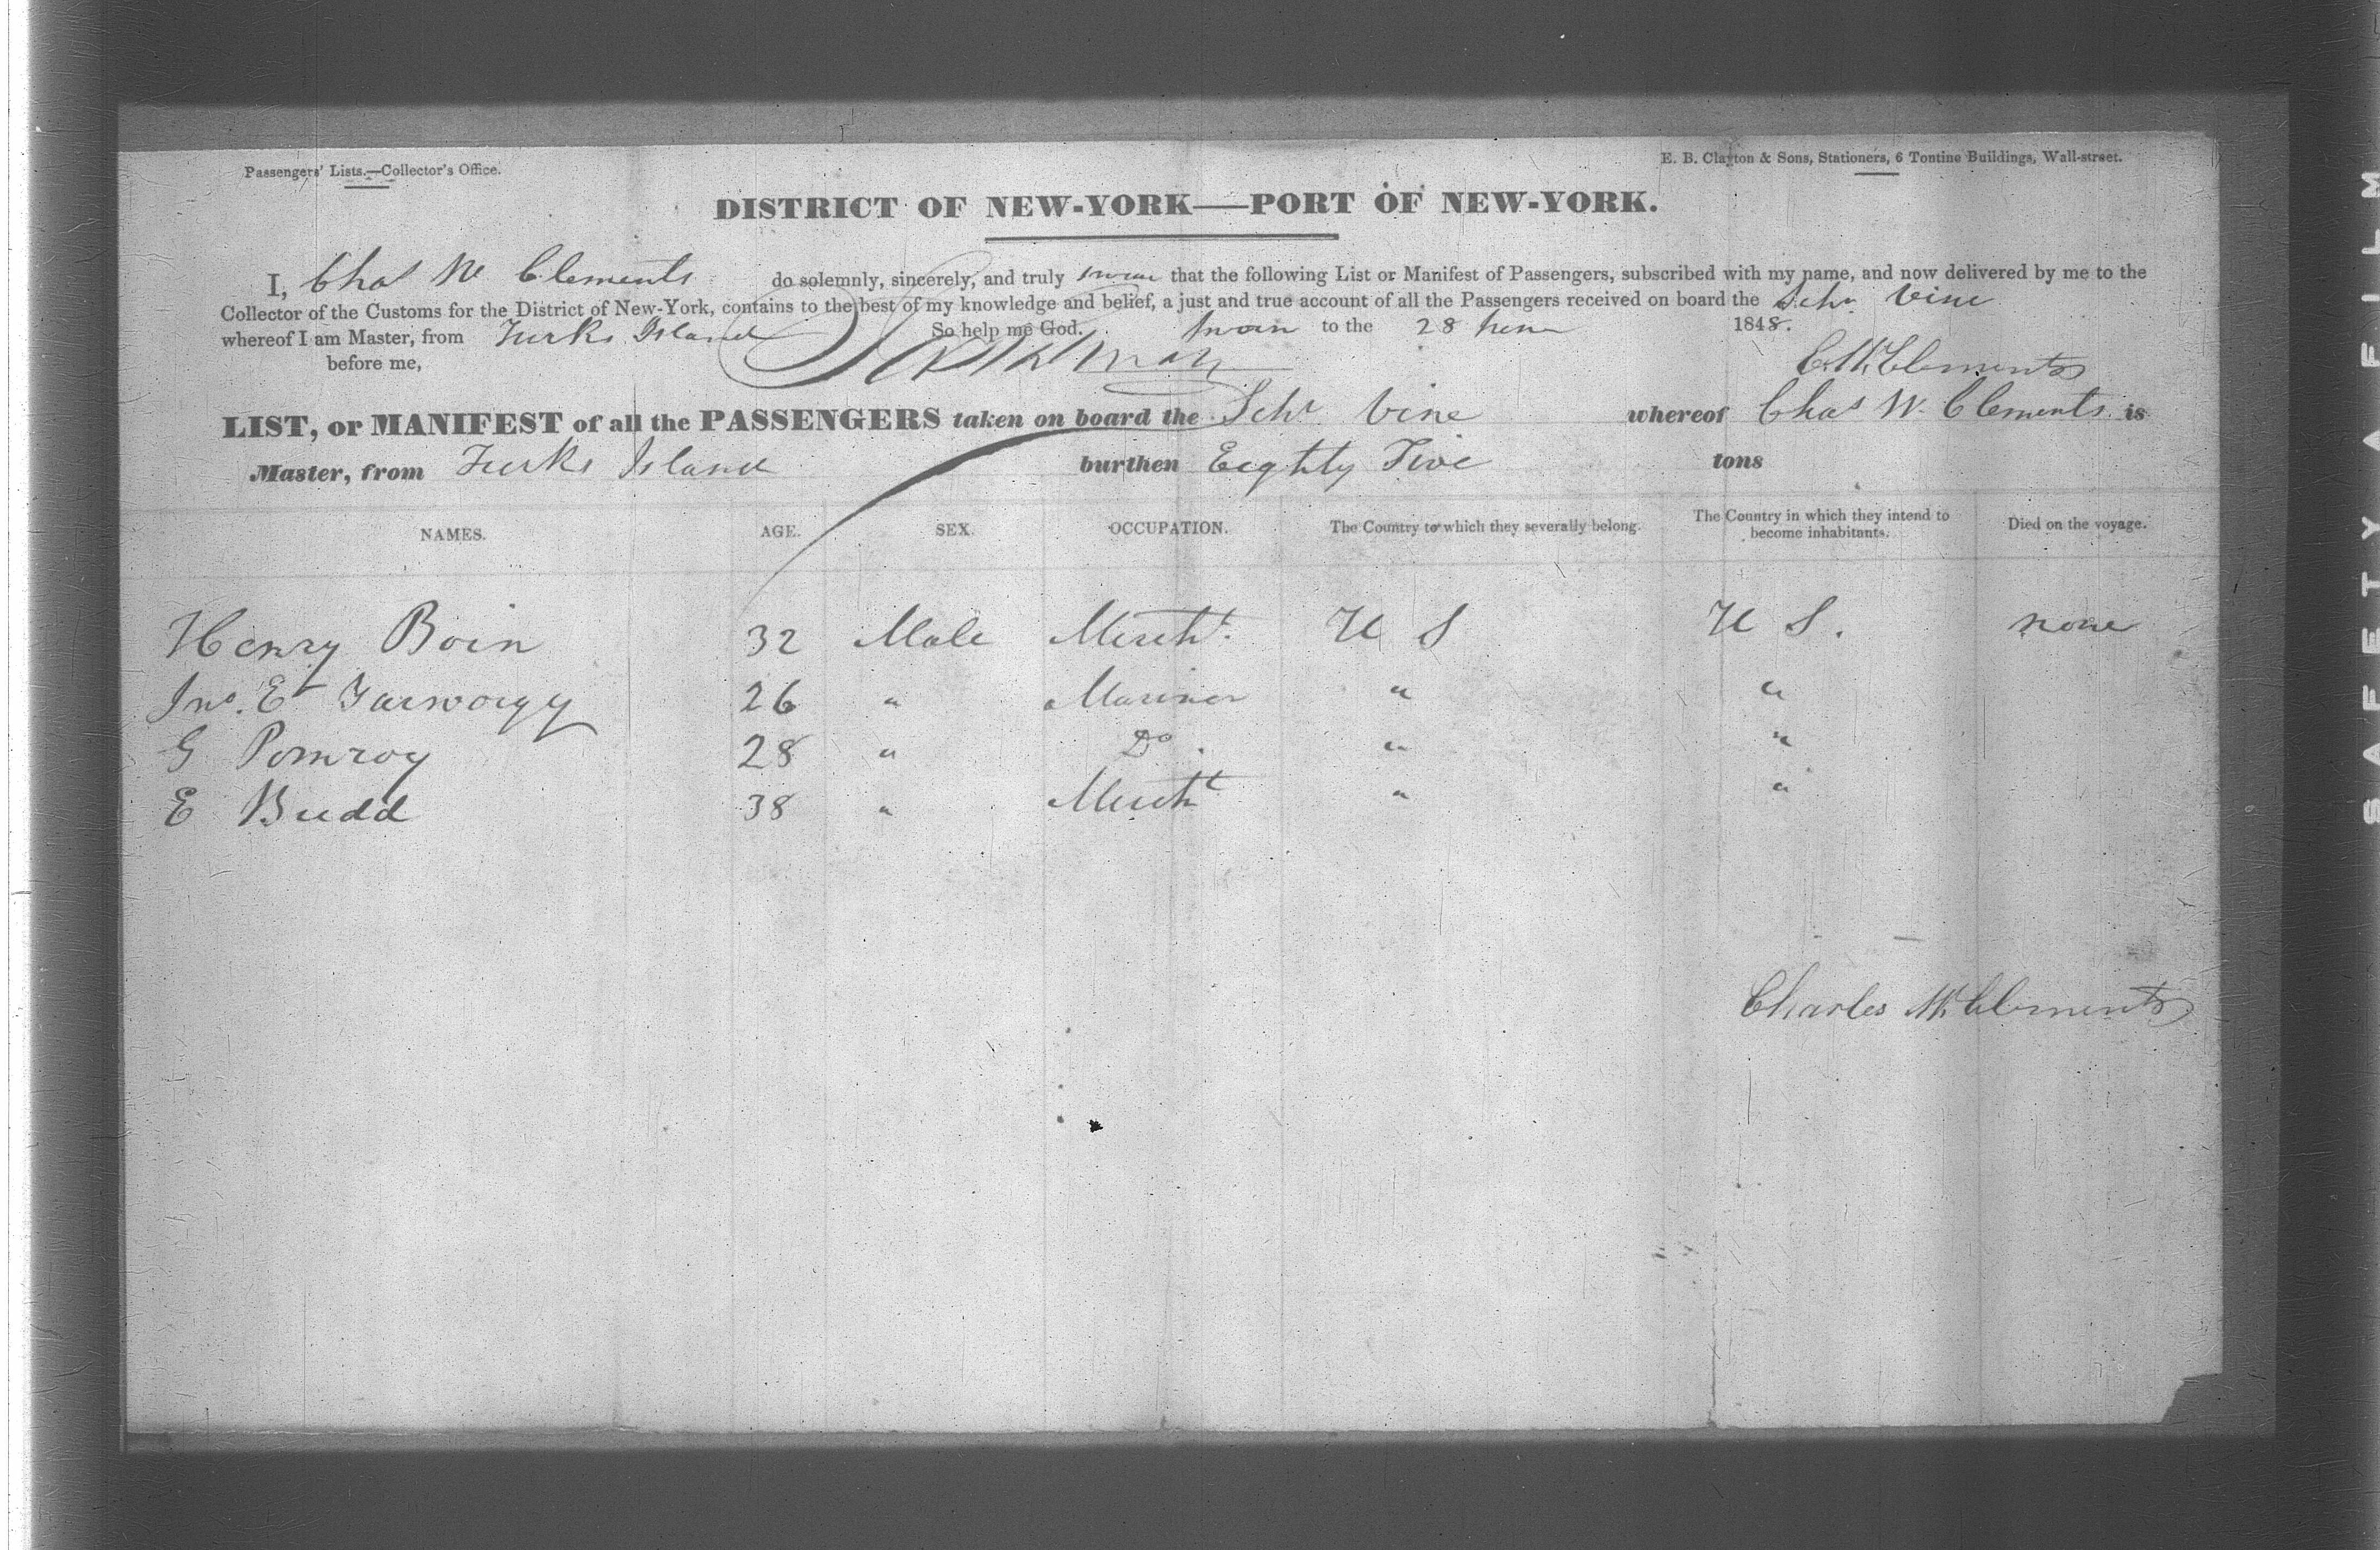 Passengers' Lists.—Collector's Office.
E. B. Clayton & Sons, Stationers, 6 Tontine Buildings, Wall-street.
DISTRICT OF NEW-YORK——PORT OF NEW-YORK.
I, Chas W Clements do solemnly, sincerely, and truly swear that the following List or Manifest of Passengers, subscribed with my name, and now delivered by me to the
Collector of the Customs for the District of New-York, contains to the best of my knowledge and belief, a just and true account of all the Passengers received on board the Schr Vine
whereof I am Master, from Turks Island So help me God. Sworn to the 28 1848.
before me,
C. W. Clements
LIST, or MANIFEST of all the PASSENGERS taken on board the Schr Vine whereof Chas W. Clements is
Master, from Turks Island burthen Eighty Five tons
NAMES. AGE. SEX. OCCUPATION. The Country to which they severally belong. The Country in which they intend to become inhabitants. Died on the voyage.
Henry Boin 32 Male Mercht. U S U S. none
Jno. E 26 " Mariner " "
G Pomroy 28 " Do. " "
E Budd 38 " Mercht " "
Charles W. Clements
SAFETY FILM